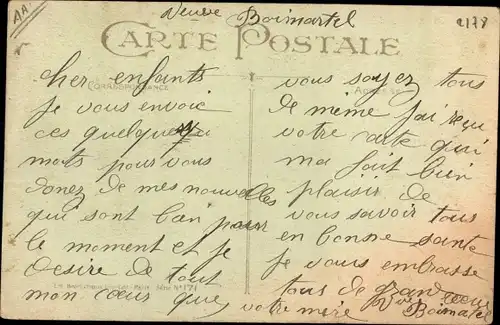 AA
Veuve Boimartel
2178
CARTE POSTALE
CORRESPONDANCE
cher enfants
je vous envoie
ces quelque
mots pour vous
donez de mes nouvelles
qui sont ban pour
le moment et je
desire de tout
mon cœur que
Série N° 171
vous soyez tous
de même j'ai reçu
votre carte qui
ma fait bien
plaisir de
vous savoir tous
en bonne sante
je vous embrasse
tous de grand cœur
votre mère Vve Boimartel